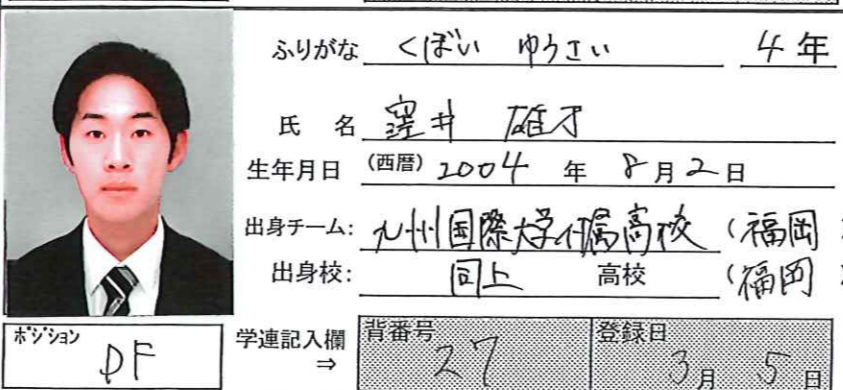 ふりがな くぼい ゆうさい 4年
氏 名 窪井 雄才
生年月日 (西暦) 2004 年 8月2日
出身チーム: 九州国際大学付属高校 (福岡
出身校: 同上 高校 (福岡
ポジション DF
学連記入欄 ⇒
背番号 27
登録日 3月 5日